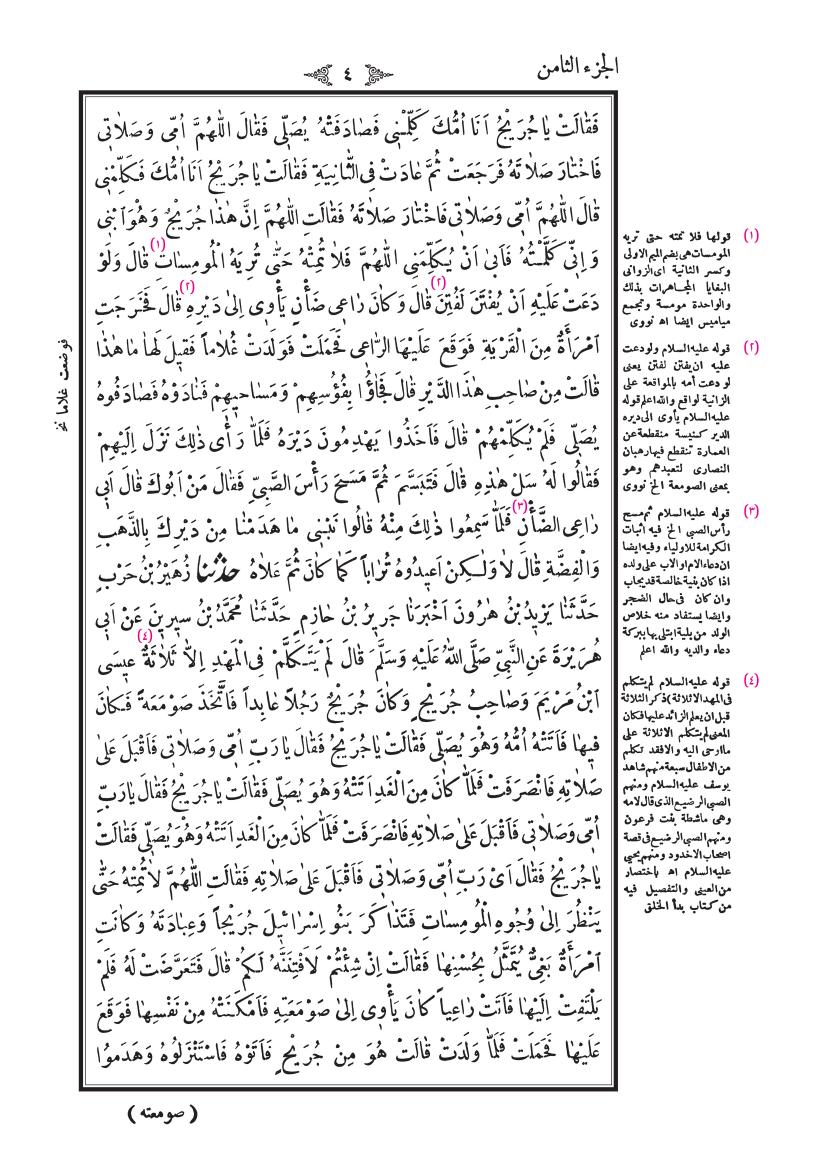 الجزء الثامن
٤
فَقَالَتْ يَا جُرَيْجُ اَنَا اُمُّكَ كَلِّمْنِى فَصَادَفَتْهُ يُصَلِّى فَقَالَ اللّٰهُمَّ اُمِّى وَصَلَاتِى
فَاخْتَارَ صَلَاتَهُ فَرَجَعَتْ ثُمَّ عَادَتْ فِى الثَّانِيَةِ فَقَالَتْ يَا جُرَيْجُ اَنَا اُمُّكَ فَكَلِّمْنِى
قَالَ اللّٰهُمَّ اُمِّى وَصَلَاتِى فَاخْتَارَ صَلَاتَهُ فَقَالَتِ اللّٰهُمَّ اِنَّ هٰذَا جُرَيْجٌ وَهُوَ ابْنِى
وَ اِنِّى كَلَّمْتُهُ فَاَبٰى اَنْ يُكَلِّمَنِى اللّٰهُمَّ فَلَا تُمِتْهُ حَتّٰى تُرِيَهُ الْمُومِسَاتِ (١) قَالَ وَلَوْ
دَعَتْ عَلَيْهِ اَنْ يُفْتَنَ لَفُتِنَ (٢) قَالَ وَكَانَ رَاعِى ضَأْنٍ يَأْوِى اِلٰى دَيْرِهِ (٢) قَالَ فَخَرَجَتِ
امْرَأَةٌ مِنَ الْقَرْيَةِ فَوَقَعَ عَلَيْهَا الرَّاعِى فَحَمَلَتْ فَوَلَدَتْ غُلَاماً فَقِيلَ لَهَا مَا هٰذَا
قَالَتْ مِنْ صَاحِبِ هٰذَا الدَّيْرِ قَالَ فَجَاؤُا بِفُؤُسِهِمْ وَمَسَاحِيهِمْ فَنَادَوْهُ فَصَادَفُوهُ
يُصَلِّى فَلَمْ يُكَلِّمْهُمْ قَالَ فَاَخَذُوا يَهْدِمُونَ دَيْرَهُ فَلَمَّا رَأٰى ذٰلِكَ نَزَلَ اِلَيْهِمْ
فَقَالُوا لَهُ سَلْ هٰذِهِ قَالَ فَتَبَسَّمَ ثُمَّ مَسَحَ رَأْسَ الصَّبِىِّ فَقَالَ مَنْ اَبُوكَ قَالَ اَبِى
رَاعِى الضَّأْنِ (٣) فَلَمَّا سَمِعُوا ذٰلِكَ مِنْهُ قَالُوا نَبْنِى مَا هَدَمْنَا مِنْ دَيْرِكَ بِالذَّهَبِ
وَالْفِضَّةِ قَالَ لَا وَلٰكِنْ اَعِيدُوهُ تُرَاباً كَمَا كَانَ ثُمَّ عَلَاهُ حَدَّثَنَا زُهَيْرُ بْنُ حَرْبٍ
حَدَّثَنَا يَزِيدُ بْنُ هٰرُونَ اَخْبَرَنَا جَرِيرُ بْنُ حَازِمٍ حَدَّثَنَا مُحَمَّدُ بْنُ سِيرِينَ عَنْ اَبِى
هُرَيْرَةَ عَنِ النَّبِىِّ صَلَّى اللّٰهُ عَلَيْهِ وَسَلَّمَ قَالَ لَمْ يَتَكَلَّمْ فِى الْمَهْدِ اِلَّا ثَلَاثَةٌ (٤) عِيسَى
ابْنُ مَرْيَمَ وَصَاحِبُ جُرَيْجٍ وَكَانَ جُرَيْجٌ رَجُلاً عَابِداً فَاتَّخَذَ صَوْمَعَةً فَكَانَ
فِيهَا فَاَتَتْهُ اُمُّهُ وَهُوَ يُصَلِّى فَقَالَتْ يَا جُرَيْجُ فَقَالَ يَا رَبِّ اُمِّى وَصَلَاتِى فَاَقْبَلَ عَلٰى
صَلَاتِهِ فَانْصَرَفَتْ فَلَمَّا كَانَ مِنَ الْغَدِ اَتَتْهُ وَهُوَ يُصَلِّى فَقَالَتْ يَا جُرَيْجُ فَقَالَ يَا رَبِّ
اُمِّى وَصَلَاتِى فَاَقْبَلَ عَلٰى صَلَاتِهِ فَانْصَرَفَتْ فَلَمَّا كَانَ مِنَ الْغَدِ اَتَتْهُ وَهُوَ يُصَلِّى فَقَالَتْ
يَا جُرَيْجُ فَقَالَ اَىْ رَبِّ اُمِّى وَصَلَاتِى فَاَقْبَلَ عَلٰى صَلَاتِهِ فَقَالَتِ اللّٰهُمَّ لَا تُمِتْهُ حَتّٰى
يَنْظُرَ اِلٰى وُجُوهِ الْمُومِسَاتِ فَتَذَاكَرَ بَنُو اِسْرَائِيلَ جُرَيْجاً وَعِبَادَتَهُ وَكَانَتِ
امْرَأَةٌ بَغِىٌّ يُتَمَثَّلُ بِحُسْنِهَا فَقَالَتْ اِنْ شِئْتُمْ لَاَفْتِنَنَّهُ لَكُمْ قَالَ فَتَعَرَّضَتْ لَهُ فَلَمْ
يَلْتَفِتْ اِلَيْهَا فَاَتَتْ رَاعِياً كَانَ يَأْوِى اِلٰى صَوْمَعَتِهِ فَاَمْكَنَتْهُ مِنْ نَفْسِهَا فَوَقَعَ
عَلَيْهَا فَحَمَلَتْ فَلَمَّا وَلَدَتْ قَالَتْ هُوَ مِنْ جُرَيْجٍ فَاَتَوْهُ فَاسْتَنْزَلُوهُ وَهَدَمُوا
( صومعته )
(١) قولها فلا تمته حتى تريه
المومسات هى بضم الميم الاولى
وكسر الثانية اى الزوانى
البغايا المجاهرات بذلك
والواحدة مومسة وتجمع
مياميس ايضا اه نووى
(٢) قوله عليه السلام ولو دعت
عليه ان يفتن لفتن يعنى
لو دعت أمه بالمواقعة على
الزانية لواقع والله اعلم قوله
عليه السلام يأوى الى ديره
الدير كنيسة منقطعة عن
العمارة تنقطع فيها رهبان
النصارى لتعبدهم وهو
بمعنى الصومعة الخ نووى
(٣) قوله عليه السلام ثم مسح
رأس الصبى الخ فيه اثبات
الكرامة للاولياء وفيه ايضا
ان دعاء الام والاب على ولده
اذا كان بنية خالصة قد يجاب
وان كان فى حال الضجر
وايضا يستفاد منه خلاص
الولد من بلية ابتلى بها ببركة
دعاء والديه والله اعلم
(٤) قوله عليه السلام لم يتكلم
فى المهد الا ثلاثة) ذكر الثلاثة
قبل ان يعلم الزائد عليها فكان
المعنى لم يتكلم الا ثلاثة على
ما اوحى اليه والا فقد تكلم
من الاطفال سبعة منهم شاهد
يوسف عليه السلام ومنهم
الصبى الرضيع الذى قال لامه
وهى ماشطة بنت فرعون
ومنهم الصبى الرضيع فى قصة
اصحاب الاخدود ومنهم يحيى
عليه السلام اه باختصار
من العينى والتفصيل فيه
من كتاب بدأ الخلق
فوضعت غلاما نخ